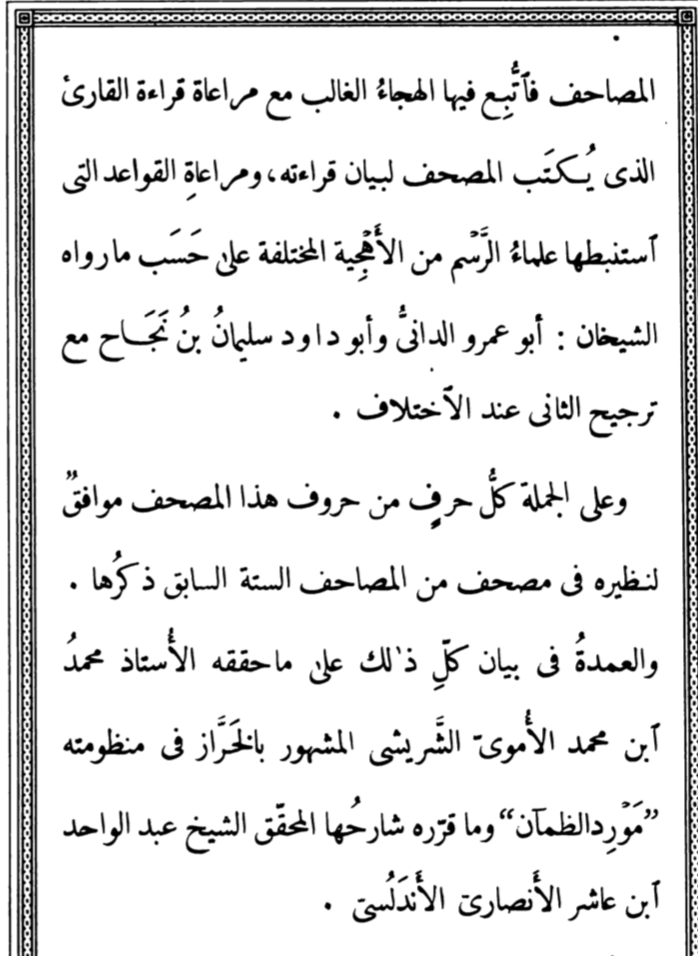 المصاحف فٱتُّبِع فيها الهجاءُ الغالب مع مراعاة قراءة القارئ
الذى يُكتَب المصحف لبيان قراءته، ومراعاةِ القواعد التى
ٱستنبطها علماءُ الرَّسْم من الأَهْجِية المختلفة علىٰ حَسَب مارواه
الشيخان : أبو عمرو الدانىُّ وأبو داود سليمانُ بنُ نَجَاح مع
ترجيح الثانى عند الٱختلاف .
وعلى الجملة كلُّ حرفٍ من حروف هذا المصحف موافقٌ
لنظيره فى مصحف من المصاحف الستة السابق ذكرُها .
والعمدةُ فى بيان كلِّ ذٰلك علىٰ ماحققه الأُستاذ محمدُ
ٱبن محمد الأُموىّ الشَّريشى المشهور بالخَرَّاز فى منظومته
”مَوْرِد الظمآن“ وما قرّره شارحُها المحقّق الشيخ عبد الواحد
ٱبن عاشر الأَنصارىّ الأَندَلُسىّ .